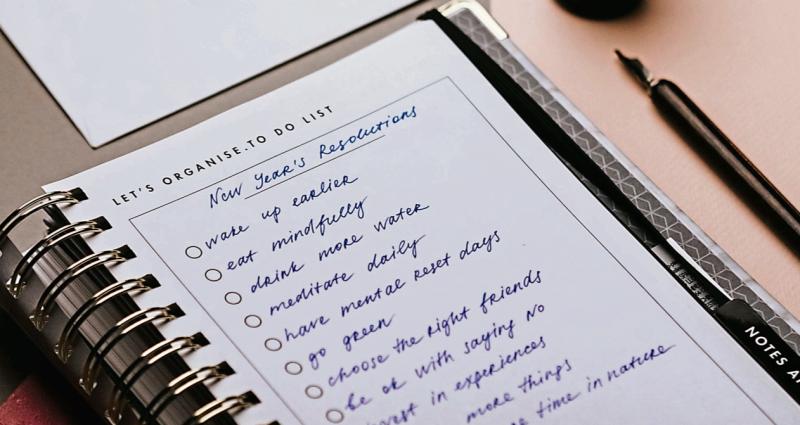 LET'S ORGANISE.TO DO LIST
New Year's Resolutions
wake up earlier
eat mindfully
drink more water
meditate daily
have mental reset days
go green
choose the right friends
be ok with saying NO
in experiences
more things
time in nature
NOTES